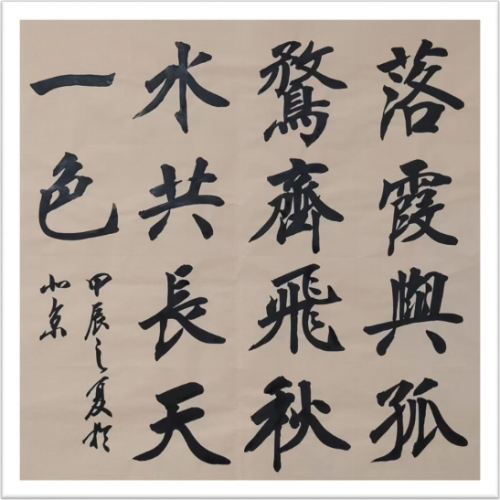 落霞與孤
鶩齊飛秋
水共長天
一色
甲辰之夏於
北京